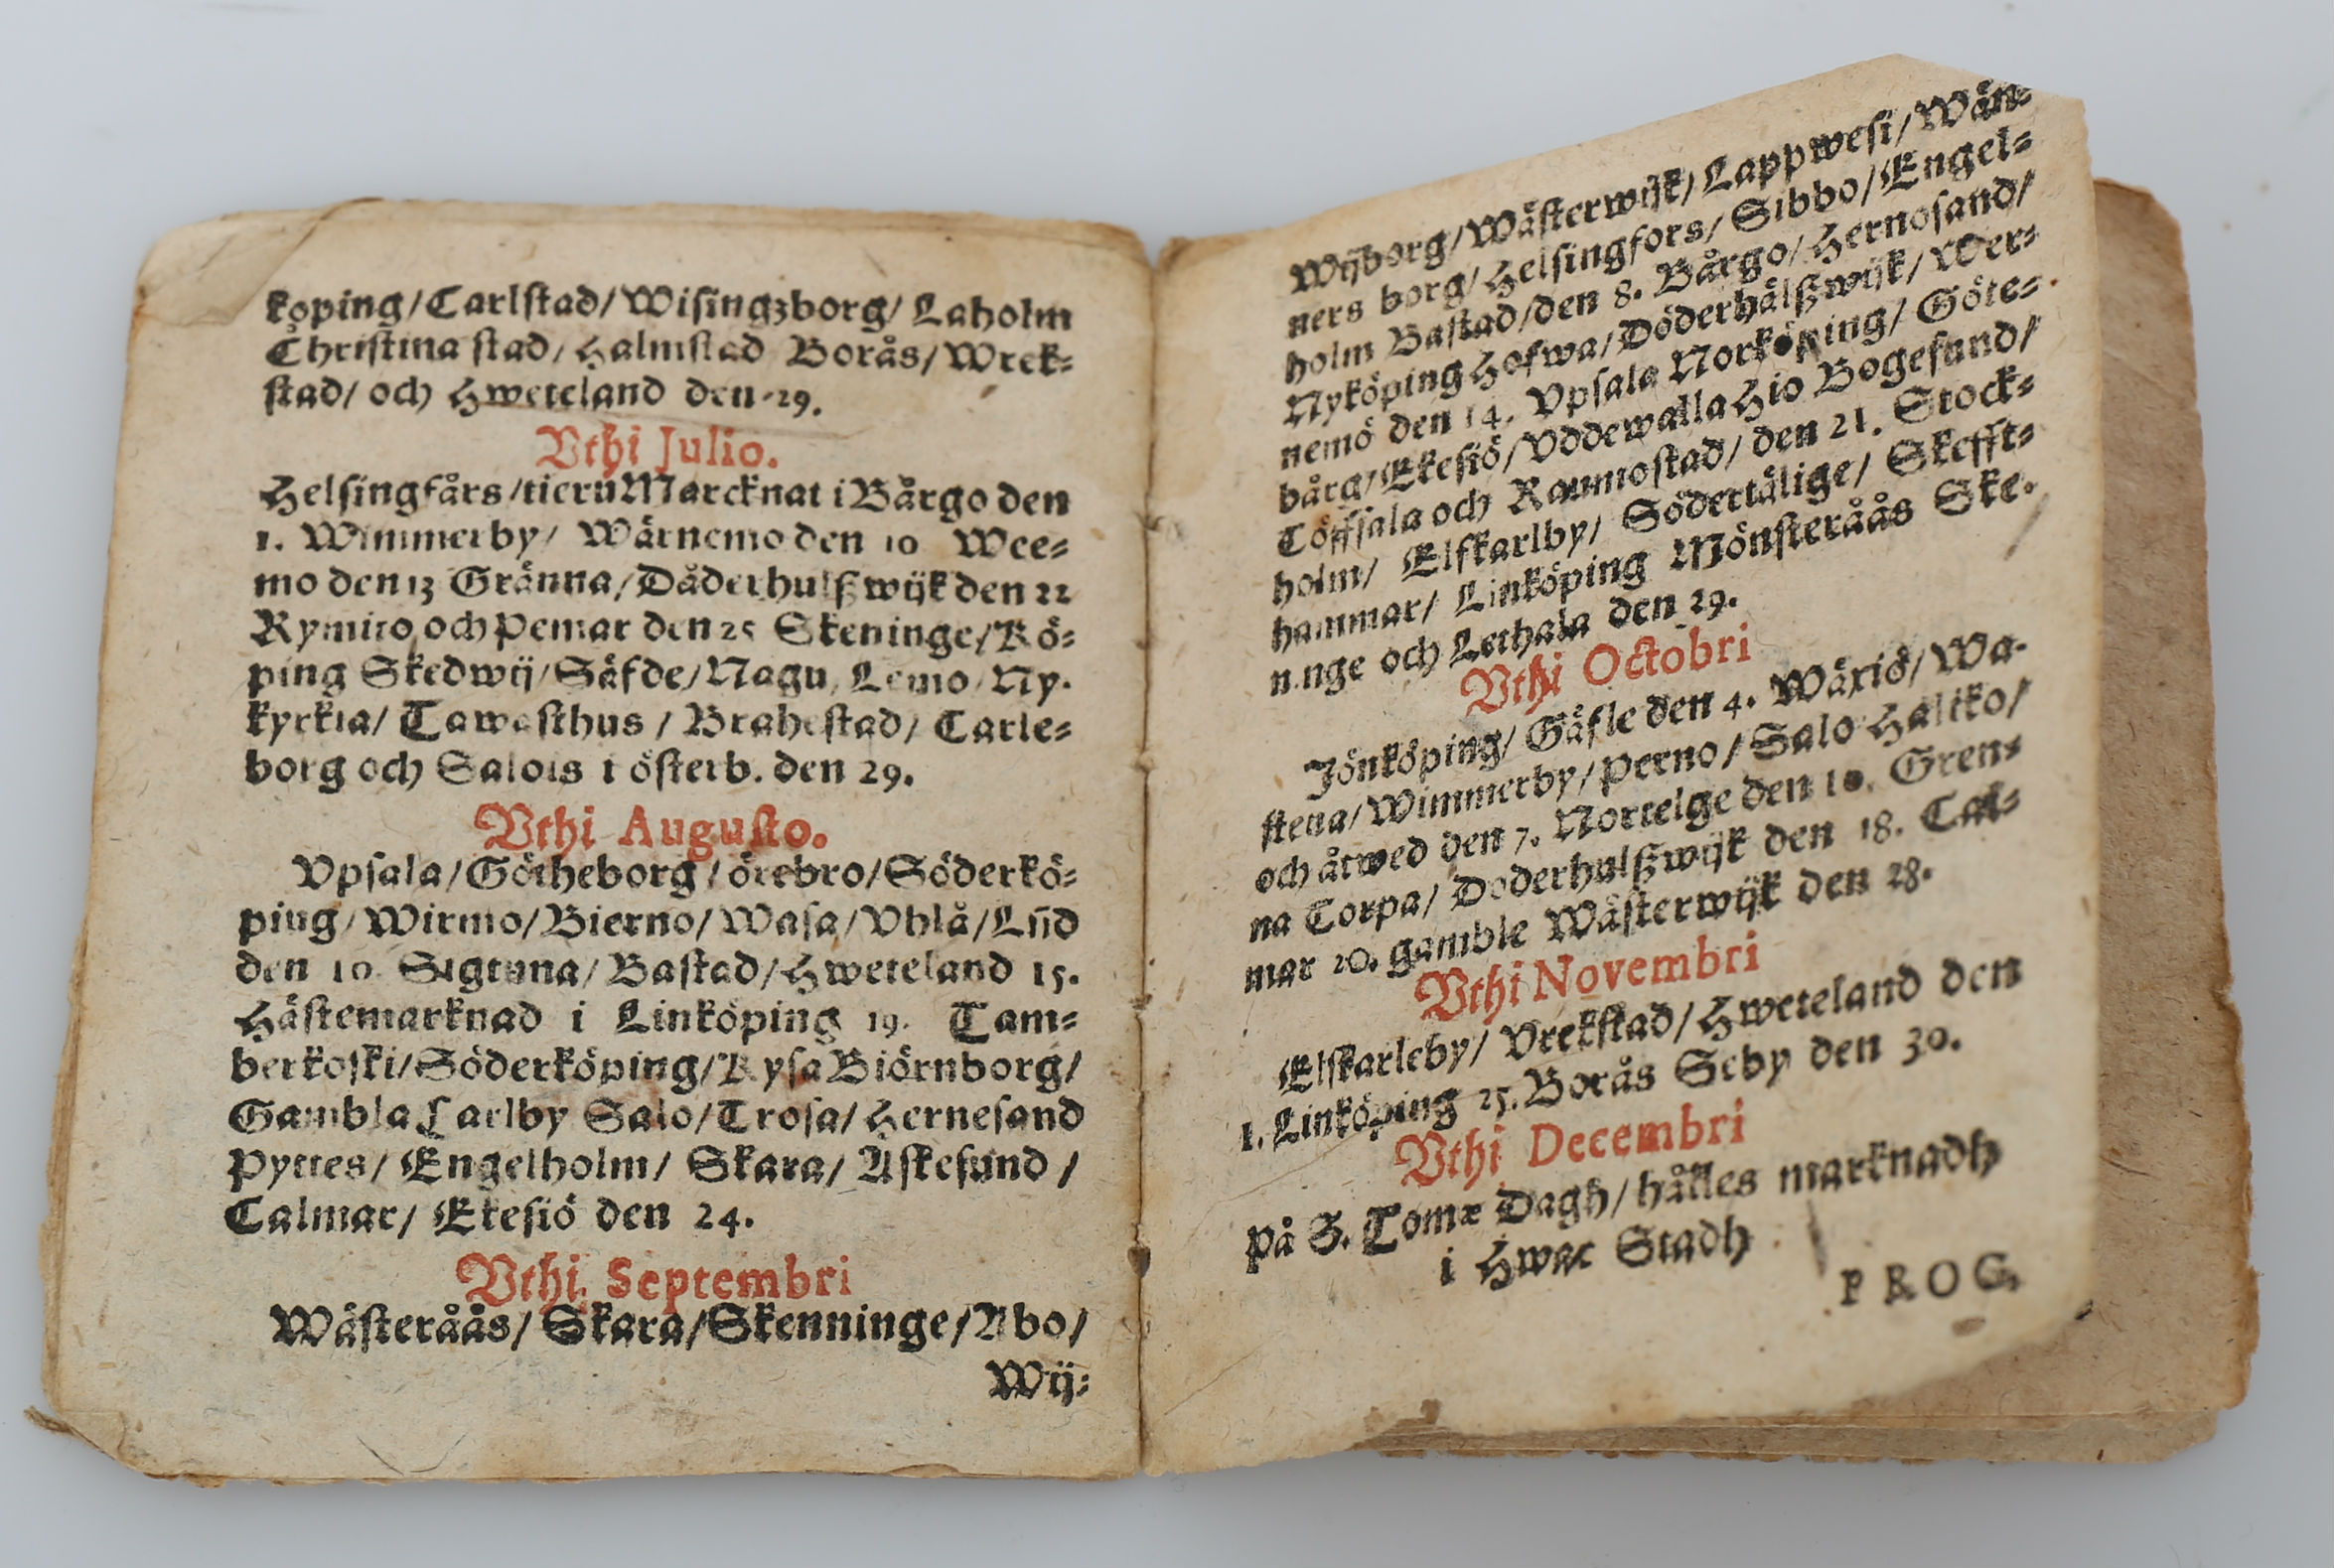 köping/Carlstad/Wisingzborg/Laholm
Christina stad/Halmstad Borås/Wrek=
stad/och Hweteland den 29.
Vthi Julio.
Helsingfårs/tieru Marcknat i Bårgo den
1. Wimmerby/ Wärnemo den 10 Wee=
mo den 13 Gränna/Dåderhulßwijk den 22
Rymito och Pemar den 25 Skeninge/Kö=
ping Skedwij/Säfde/Nagu, Lemo/Ny.
kyrkia/ Tawasthus/Brahestad/Carle=
borg och Salois i österb. den 29.
Vthi Augusto.
Vpsala/Götheborg/örebro/Söderkö=
ping/Wirmo/Bierno/Wasa/Vhlå/Lñd
den 10. Sigtuna/Bastad/Hweteland 15.
Hästemarknad i Linköping 19. Tam=
berkoski/Söderköping/Kysa Biörnborg/
Gambla Carlby Salo/Trosa/Hernesand
Pyttes/ Engelholm/ Skara/ Askesund/
Calmar/ Ekesiö den 24.
Vthi Septembri
Wästeråås/Skara/Skenninge/Abo/
Wij=
Wijborg/Wästerwijk/Lappwesi/Wän=
ners borg/Helsingfors/Sibbo/Engel=
holm Bastad/den 8. Bårgo/Hernosand/
Nyköping Hofwa/Döderhålßwijk/Wer=
nemö den 14. Vpsala Norköping/Göte=
bårg/Ekesiö/Vddewalla Hio Bogesund/
Töffsala och Raumostad/den 21. Stock=
holm/ Elfkarlby/ Södertälige/ Skefft=
hammar/ Linköping Mönsteråås Ske.
ninge och Lethala den 29.
Vthi Octobri
Jönköping/Gäfle den 4. Wäxiö/Wa-
stena/Wimmerby/Perno/Salo Haliko/
och åtwed den 7. Nortelge den 10. Gren=
na Torpa/ Doderhulßwijk den 18. Cal=
mar 20. gamble Wästerwijk den 28.
Vthi Novembri
Elfkarleby/Vrekstad/Hweteland den
1. Linköping 25. Borås Seby den 30.
Vthi Decembri
På S. Tomæ Dagh/hålles marknadh
i Hwar Stadh
PROG.